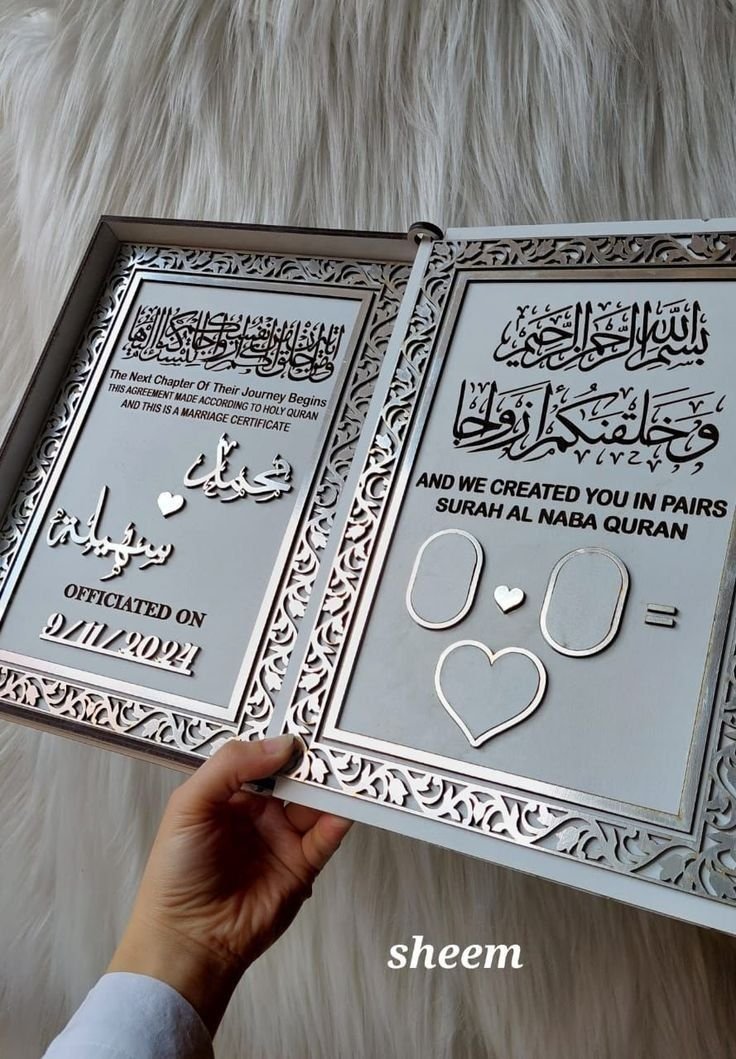 ومن آياته أن خلق لكم من أنفسكم أزواجا لتسكنوا إليها
The Next Chapter Of Their Journey Begins
THIS AGREEMENT MADE ACCORDING TO HOLY QURAN
AND THIS IS A MARRIAGE CERTIFICATE
محمد
سهيلة
OFFICIATED ON
9/11/2024
بسم الله الرحمن الرحيم
وَخَلَقْنَكُمْ أَزْوَاجًا
AND WE CREATED YOU IN PAIRS
SURAH AL NABA QURAN
=
sheem